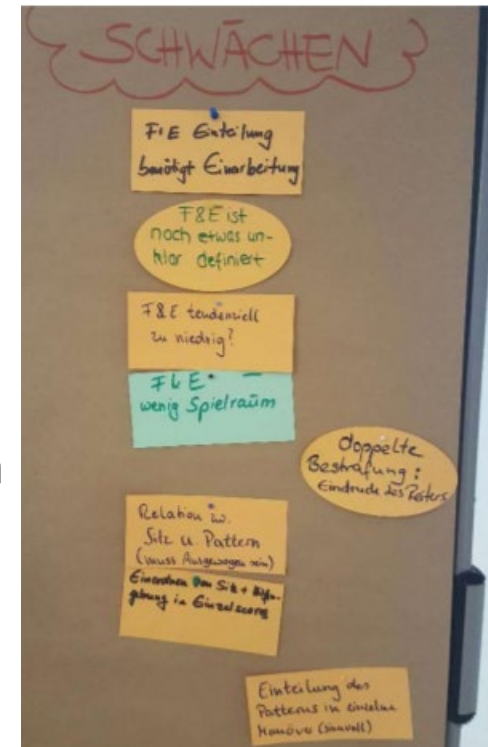 SCHWÄCHEN
F&E Einteilung
benötigt Einarbeitung
F&E ist
noch etwas un-
klar definiert
F&E tendenziell
zu niedrig?
F&E
wenig Spielraum
doppelte
Bestrafung:
Eindruck des Reiters
Relation zw.
Sitz u. Pattern
(muss Ausgewogen sein)
Einordnen von Sitz +
in Einzelscores
Einteilung des
Patterns in einzelne
Manöver (sinnvoll)